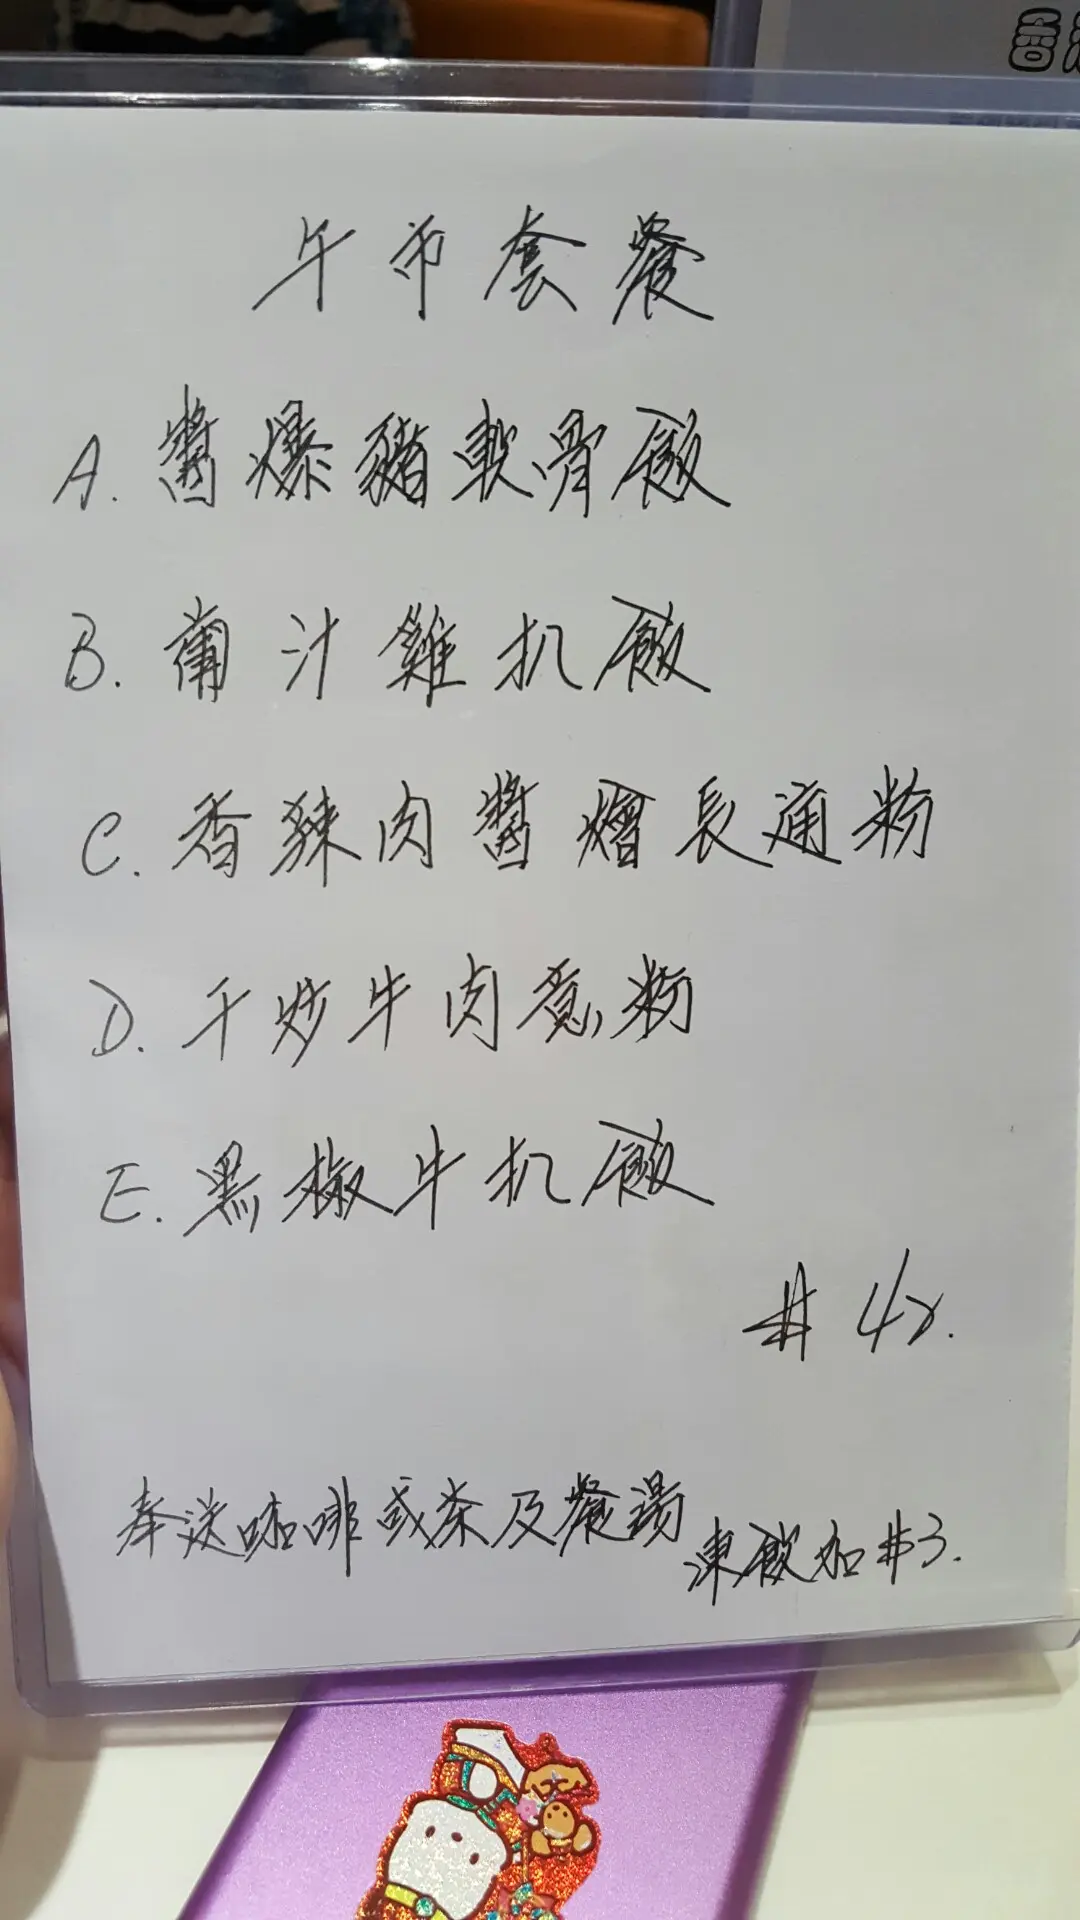 香港
午市套餐
A. 醬爆豬軟骨飯
B. 葡汁雞扒飯
C. 香辣肉醬燴長通粉
D. 干炒牛肉意粉
E. 黑椒牛扒飯
奉送咖啡或茶及餐湯
凍飲加$3.